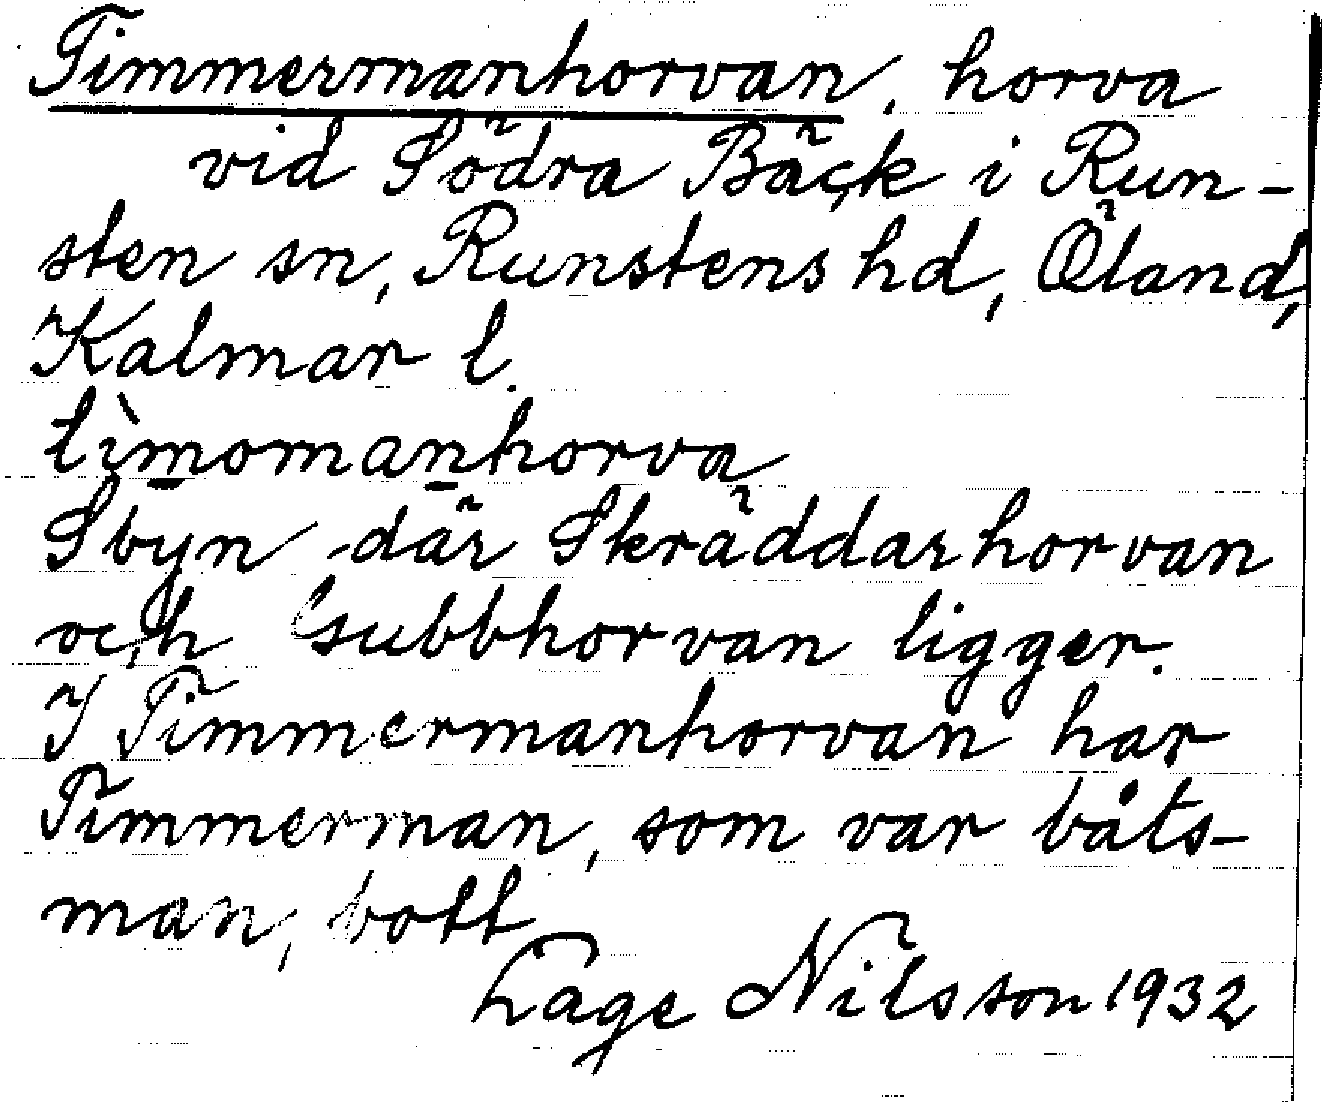 Timmermanhorvan, horva
vid Södra Bäck i Run-
sten sn, Runstens hd, Öland,
Kalmar l.
tìmomanhorva
Sbyn där Skräddarhorvan
och Gubbhorvan ligger.
I Timmermanhorvan har
Timmerman, som var båts-
man, bott
Tage Nilsson 1932